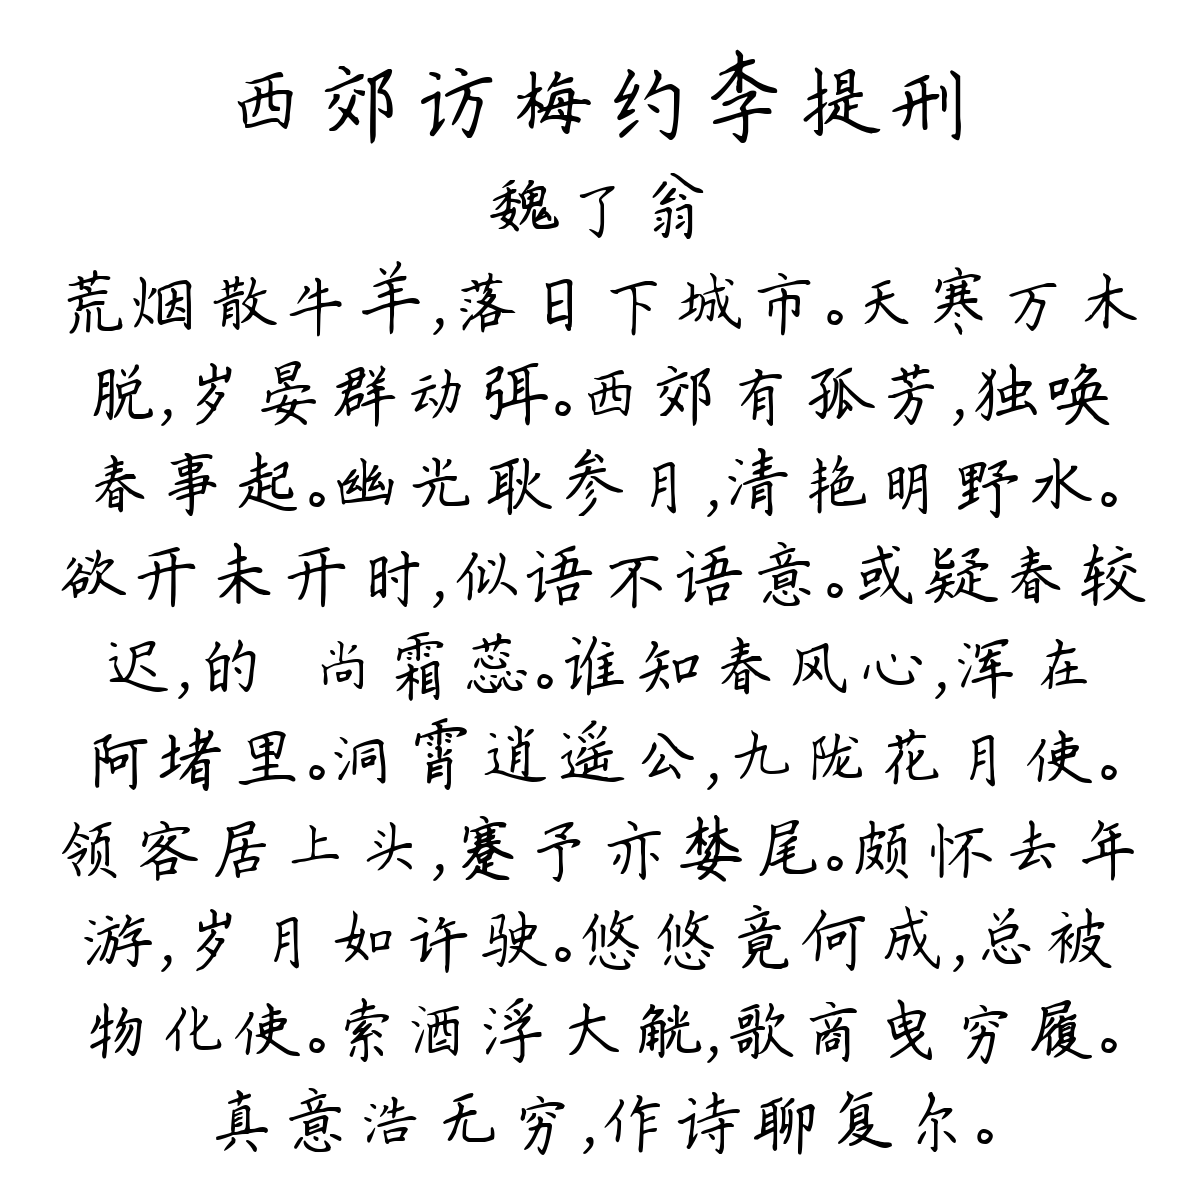 西郊访梅约李提刑
魏了翁
荒烟散牛羊,落日下城市。天寒万木
脱,岁晏群动弭。西郊有孤芳,独唤
春事起。幽光耿参月,清艳明野水。
欲开未开时,似语不语意。或疑春较
迟,的 尚霜蕊。谁知春风心,浑在
阿堵里。洞霄逍遥公,九陇花月使。
领客居上头,蹇予亦婪尾。颇怀去年
游,岁月如许驶。悠悠竟何成,总被
物化使。索酒浮大觥,歌商曳穷履。
真意浩无穷,作诗聊复尔。